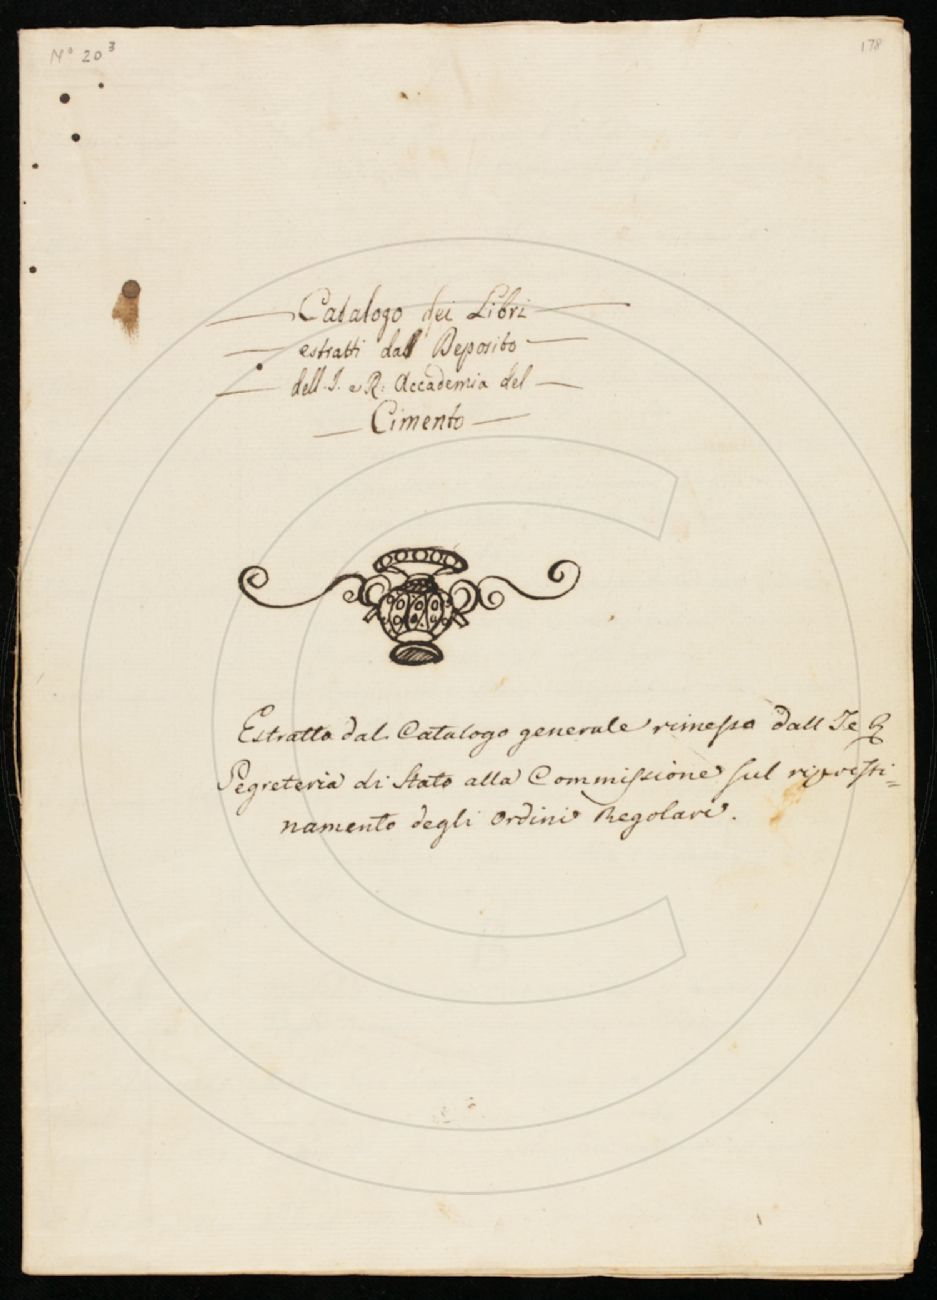 N° 20³
178
Catalogo dei Libri
estratti dal Deposito
dell I. e R: Accademia del
Cimento
Estratto dal Catalogo generale rimesso dall I e R
Segreteria di Stato alla Commissione sul ripristi=
namento degli Ordini Regolari.